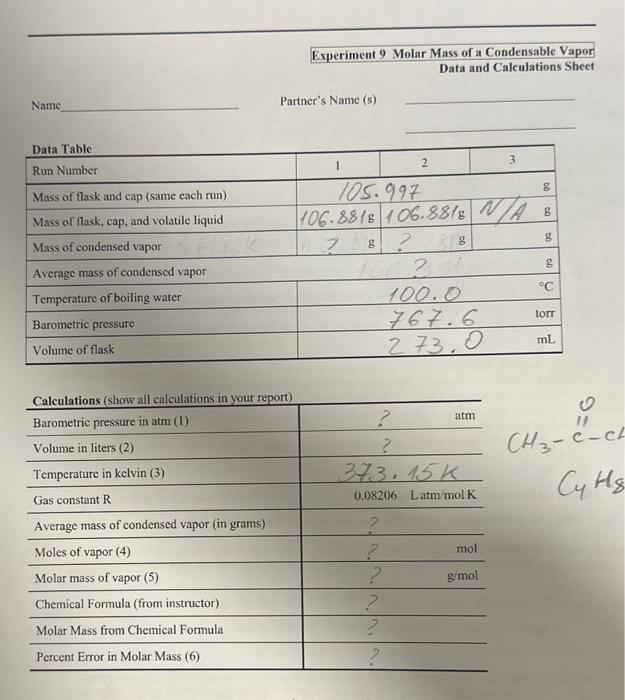 Experiment 9 Molar Mass of a Condensable Vapor
Data and Calculations Sheet
Name
Partner's Name (s)
Data Table
Run Number 1 2 3
Mass of flask and cap (same each run) 105.997 g
Mass of flask, cap, and volatile liquid 106.881g 106.881g N/A g
Mass of condensed vapor ? g ? g g
Average mass of condensed vapor ? g
Temperature of boiling water 100.0 °C
Barometric pressure 767.6 torr
Volume of flask 273.0 mL
Calculations (show all calculations in your report)
Barometric pressure in atm (1) ? atm
Volume in liters (2) ?
Temperature in kelvin (3) 373.15K
Gas constant R 0.08206 L atm/mol K
Average mass of condensed vapor (in grams) ?
Moles of vapor (4) ? mol
Molar mass of vapor (5) ? g/mol
Chemical Formula (from instructor) ?
Molar Mass from Chemical Formula ?
Percent Error in Molar Mass (6) ?
O
CH3-C-
C4H8